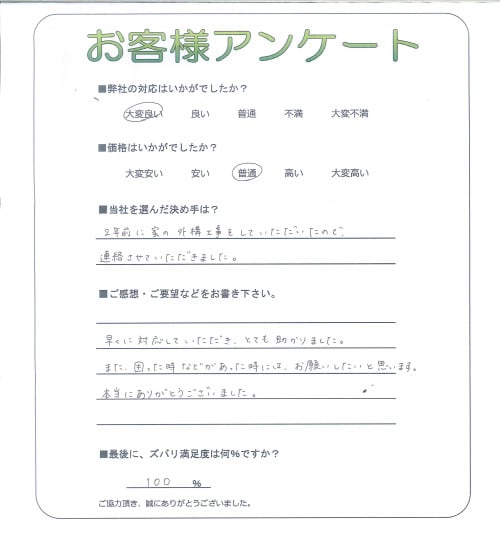 お客様アンケート
■弊社の対応はいかがでしたか？
大変良い 良い 普通 不満 大変不満
■価格はいかがでしたか？
大変安い 安い 普通 高い 大変高い
■当社を選んだ決め手は？
2年前に家の外構工事をしていただいたので、
連絡させていただきました。
■ご感想・ご要望などをお書き下さい。
早くに対応していただき、とても助かりました。
また、困った時などがあった時には、お願いしたいと思います。
本当にありがとうございました。
■最後に、ズバリ満足度は何%ですか？
100 %
ご協力頂き、誠にありがとうございました。